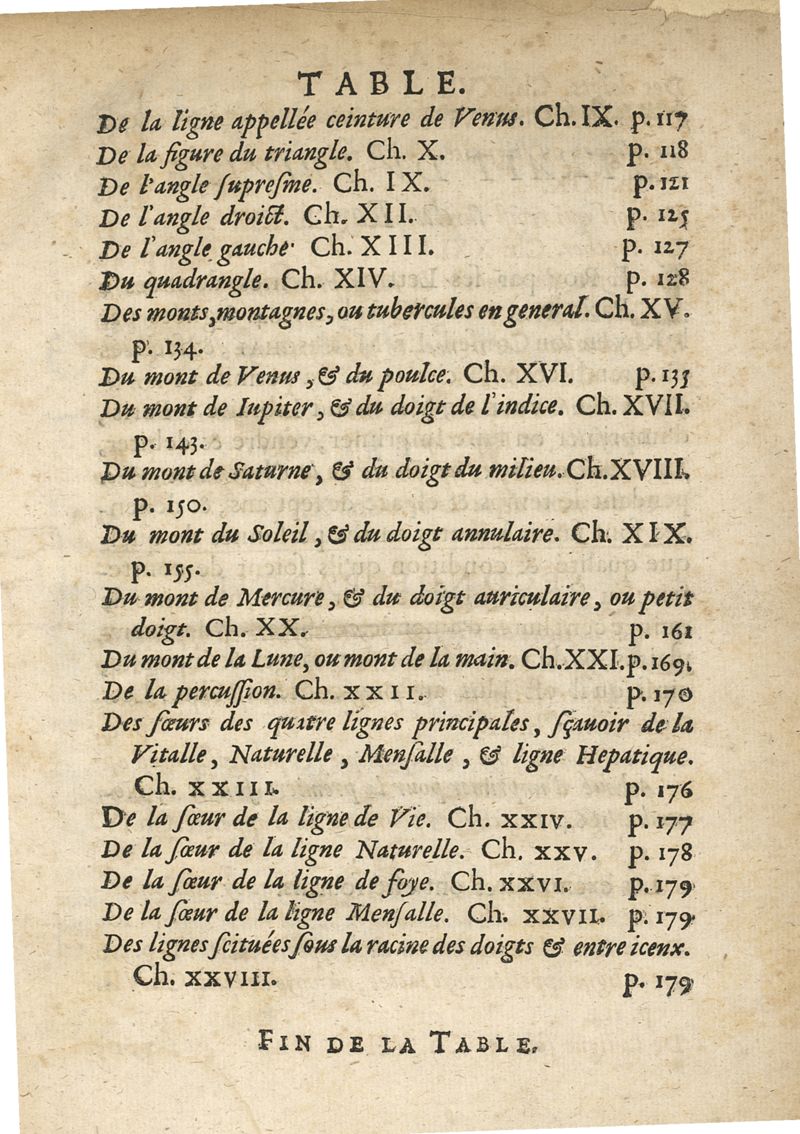 TABLE.
De la ligne appellée ceinture de Venus. Ch. IX. p. 117
De la figure du triangle. Ch. X. p. 118
De l'angle ſupreſme. Ch. IX. p. 121
De l'angle droict. Ch. XII. p. 125
De l'angle gauche· Ch. XIII. p. 127
Du quadrangle. Ch. XIV. p. 128
Des monts, montagnes, ou tubercules en general. Ch. XV.
p. 134.
Du mont de Venus, & du poulce. Ch. XVI. p. 135
Du mont de Iupiter, & du doigt de l'indice. Ch. XVII.
p. 143.
Du mont de Saturne, & du doigt du milieu. Ch. XVIII.
p. 150.
Du mont du Soleil, & du doigt annulaire. Ch. XIX.
p. 155.
Du mont de Mercure, & du doigt auriculaire, ou petit
doigt. Ch. XX. p. 161
Du mont de la Lune, ou mont de la main. Ch. XXI. p. 169.
De la percuſſion. Ch. XXII. p. 170
Des ſœurs des quatre lignes principales, ſçauoir de la
Vitalle, Naturelle, Menſalle, & ligne Hepatique.
Ch. XXIII. p. 176
De la ſœur de la ligne de Vie. Ch. XXIV. p. 177
De la ſœur de la ligne Naturelle. Ch. XXV. p. 178
De la ſœur de la ligne de foye. Ch. XXVI. p. 179
De la ſœur de la ligne Menſalle. Ch. XXVII. p. 179
Des lignes ſcituées ſous la racine des doigts & entre icenx.
Ch. XXVIII. p. 179
FIN DE LA TABLE.